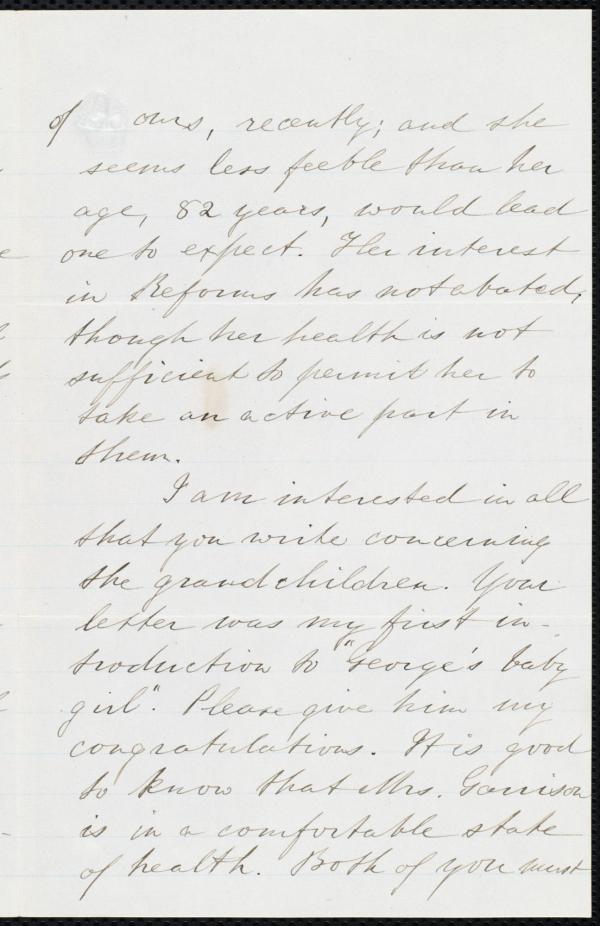 of ours, recently; and she
seems less feeble than her
age, 82 years, would lead
one to expect. Her interest
in Reforms has not abated,
though her health is not
sufficient to permit her to
take an active part in
them.
I am interested in all
that you write concerning
the grandchildren. Your
letter was my first in-
troduction to "George's baby
girl". Please give him my
congratulations. It is good
to know that Mrs. Garrison
is in a comfortable state
of health. Both of you must